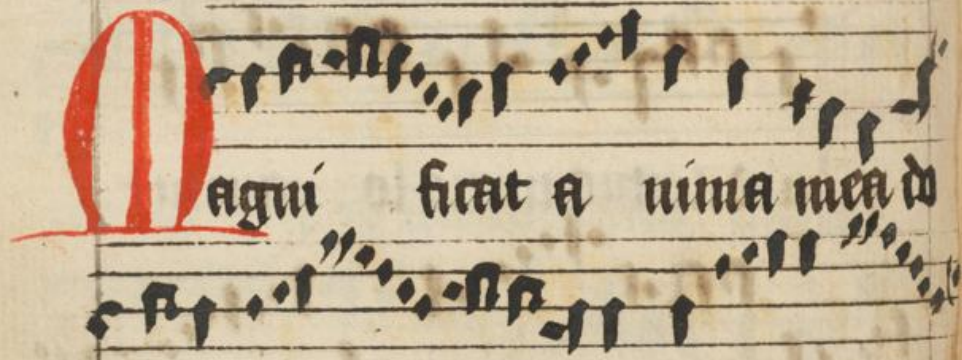 Magni ficat a nima mea do